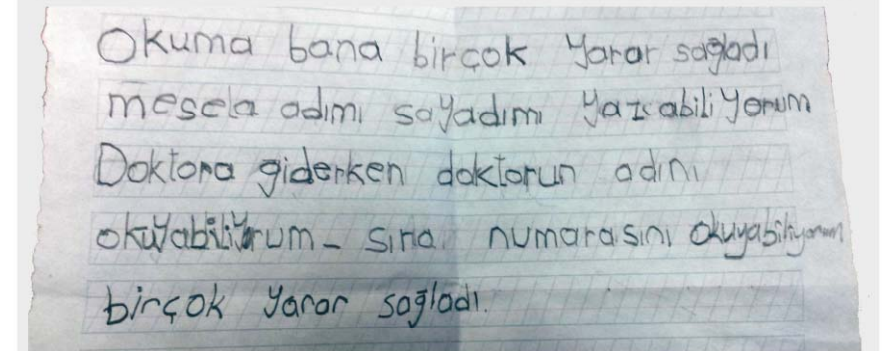 Okuma bana birçok yarar sağladı
mesela adımı sayadımı yazabiliyorum
Doktora giderken doktorun adını
okuyabiliyorum - sıra numarasını okuyabiliyorum
birçok yarar sağladı.